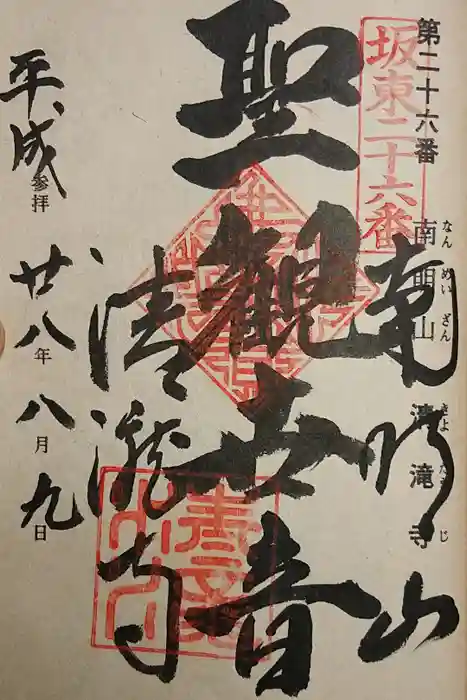 第二十六番 南明山 清滝寺
なんめいざん きよたきじ
坂東二十六番
南明山
聖観世音
清瀧寺
平成 参拝
廿八年八月九日